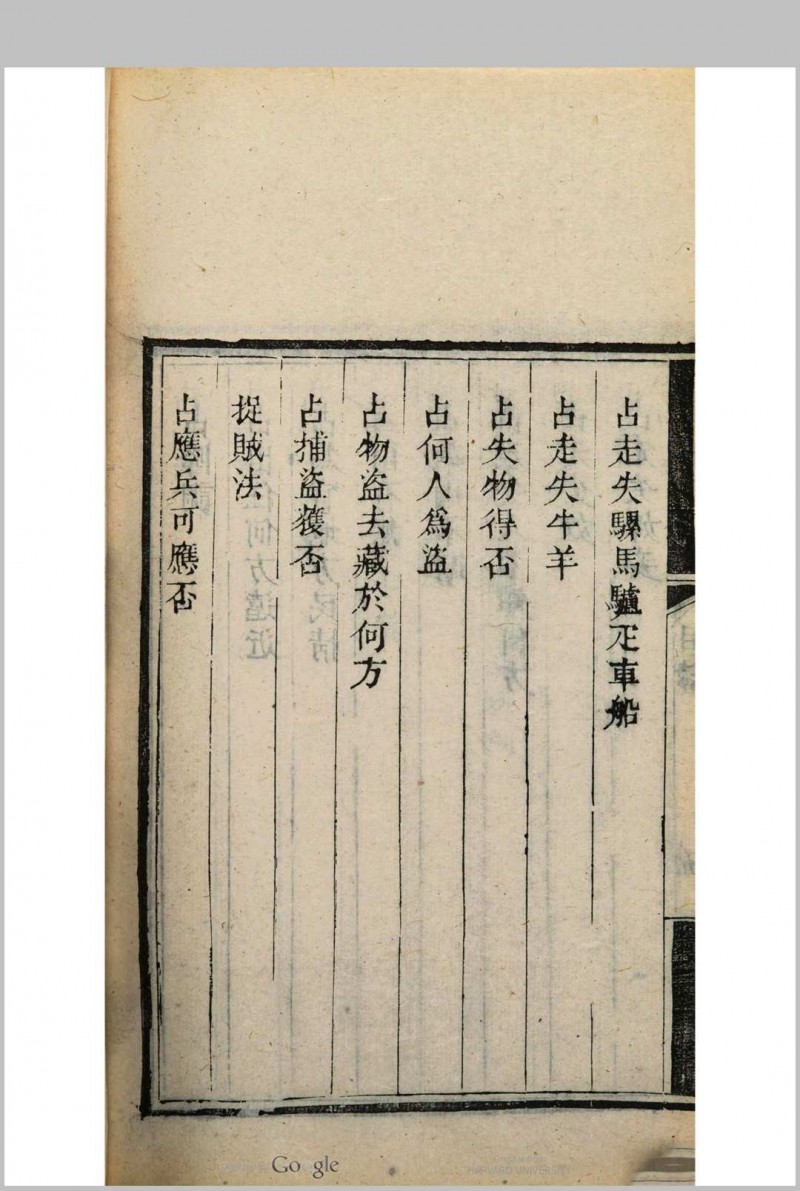 占走失騾馬驢疋車船
占走失牛羊
占失物得否
占何人為盜
占物盜去藏於何方
占捕盜獲否
捉賊法
占應兵可應否
Google